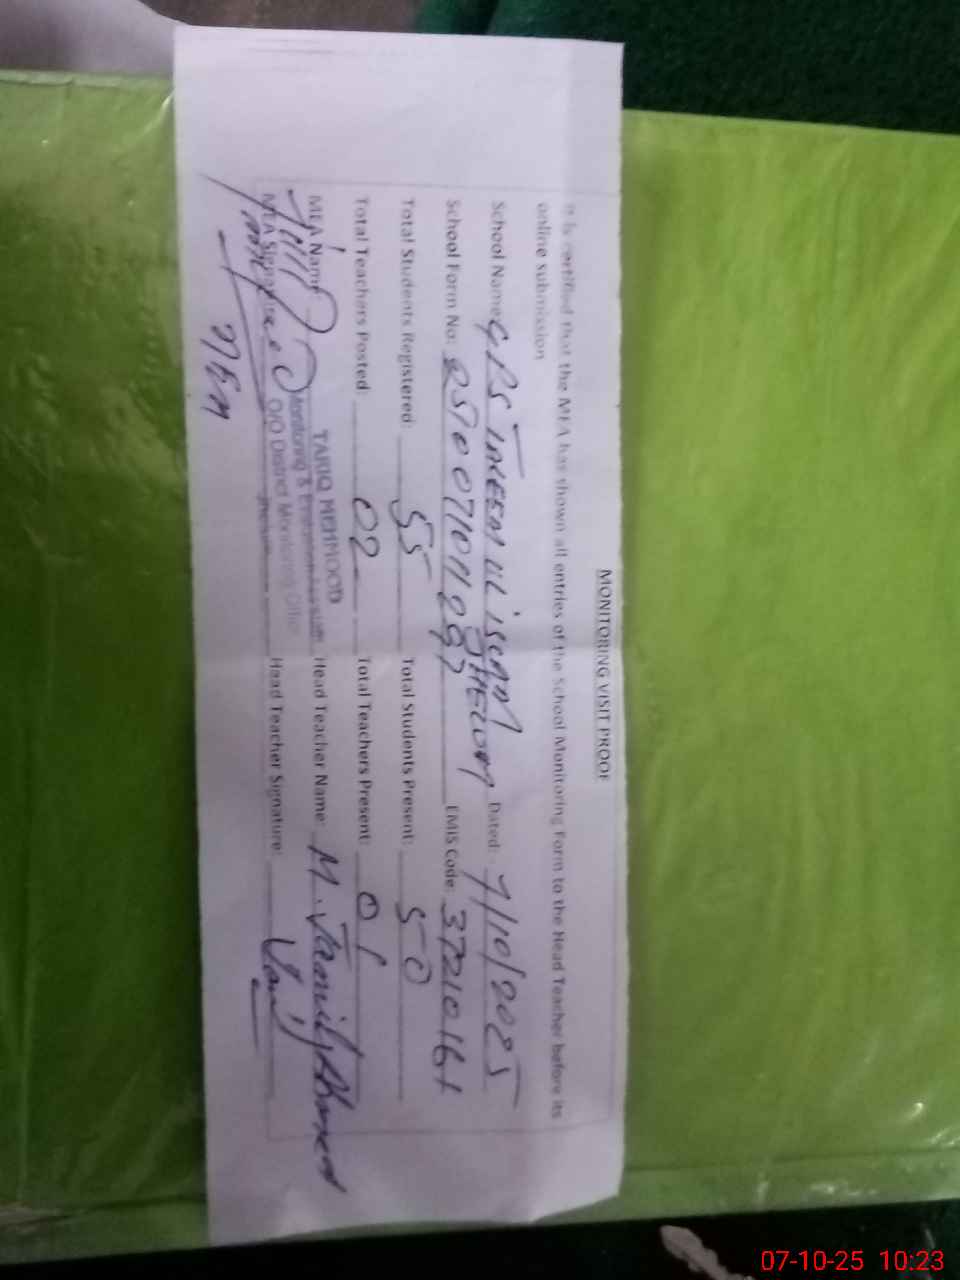 MONITORING VISIT PROOF
It is certified that the MEA has shown all entries of the School Monitoring Form to the Head Teacher before its
online submission
School Name: GPS TALEEM UL ISLAM Dated: 7/10/2025
School Form No: EMIS Code:
Total Students Registered: 55 Total Students Present: 50
Total Teachers Posted: 02 Total Teachers Present: 01
MEA Name: Head Teacher Name: M. Jamil Ahmed
MEA Signature Head Teacher Signature:
TARIQ MEHMOOD
Monitoring & Evaluation Assistant
O/O District Monitoring Officer
Jhelum
07-10-25 10:23